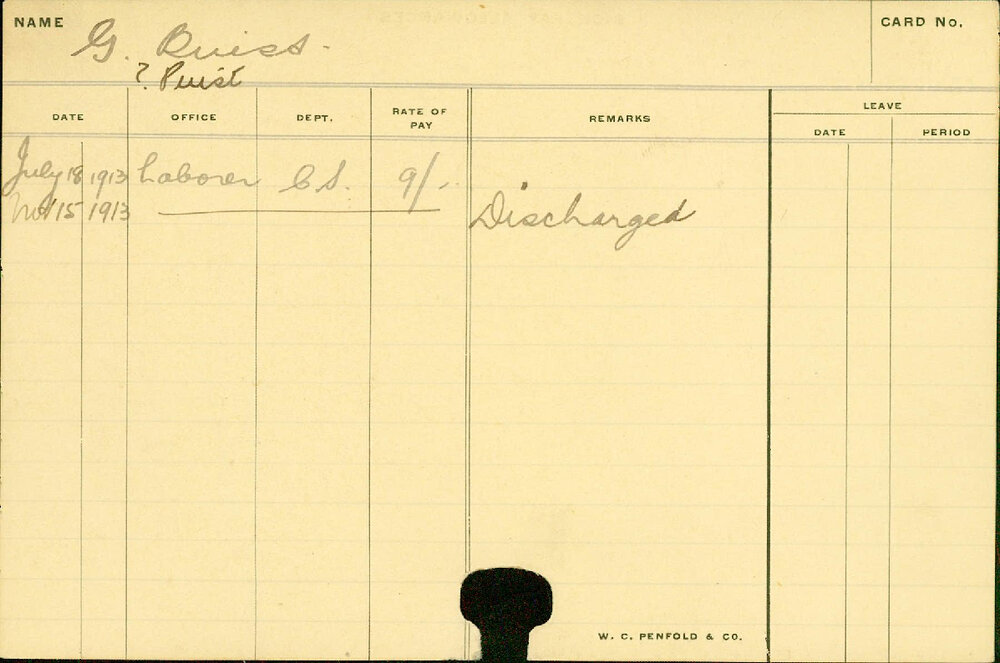 NAME G. Buiss. CARD No.
? Puist
DATE OFFICE DEPT. RATE OF PAY REMARKS LEAVE
DATE PERIOD
July 18 1913 Laborer C.S. 9/-
Nov 15 1913 Discharged
W. C. PENFOLD & CO.